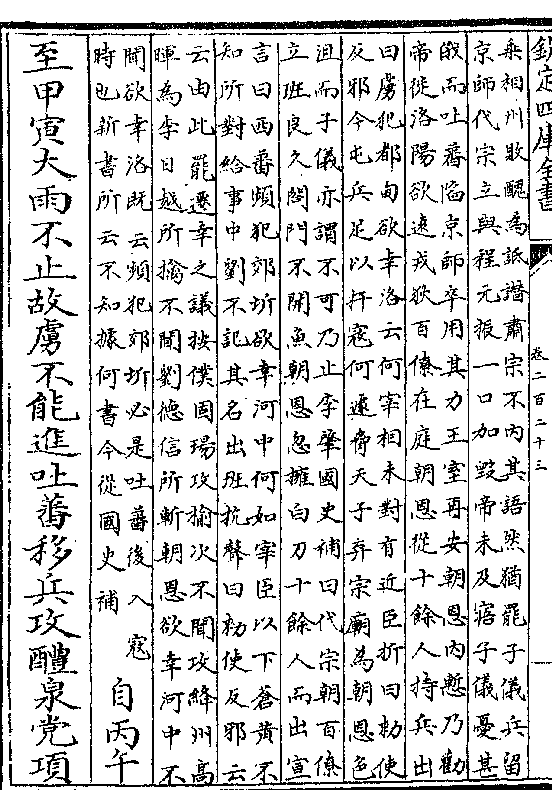 欽定四庫全書
卷二百二十三
乘相州敗醜為詆譖肅宗不内其語然猶罷子儀兵留
京師代宗立與程元振一口加毀帝未及寤子儀憂甚
俄而吐蕃陷京師卒用其力王室再安朝恩内慙乃勸
帝徙洛陽欲遠戎狄百僚在庭朝恩從十餘人持兵出
曰虜犯都甸欲幸洛云何宰相未對有近臣折曰勅使
反邪今屯兵足以扞寇何遽脅天子弃宗廟為朝恩色
沮而子儀亦謂不可乃止李肇國史補曰代宗朝百僚
立班良久閤門不開魚朝恩忽擁白刃十餘人而出宣
言曰西蕃頻犯郊圻欲幸河中何如宰臣以下蒼黄不
知所對給事中劉不記其名出班抗聲曰勅使反邪云
云由此罷遷幸之議按僕固瑒攻榆次不聞攻絳州高
暉為李日越所擒不聞劉德信所斬朝恩欲幸河中不
聞欲幸洛既云頻犯郊圻必是吐蕃後入寇
時也新書所云不知據何書今從國史補
自丙午
至甲寅大雨不止故虜不能進吐蕃移兵攻醴泉党項